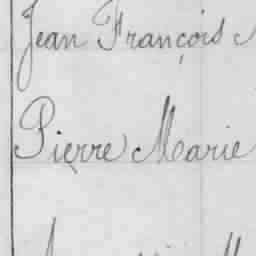 Jean François
Pierre Marie